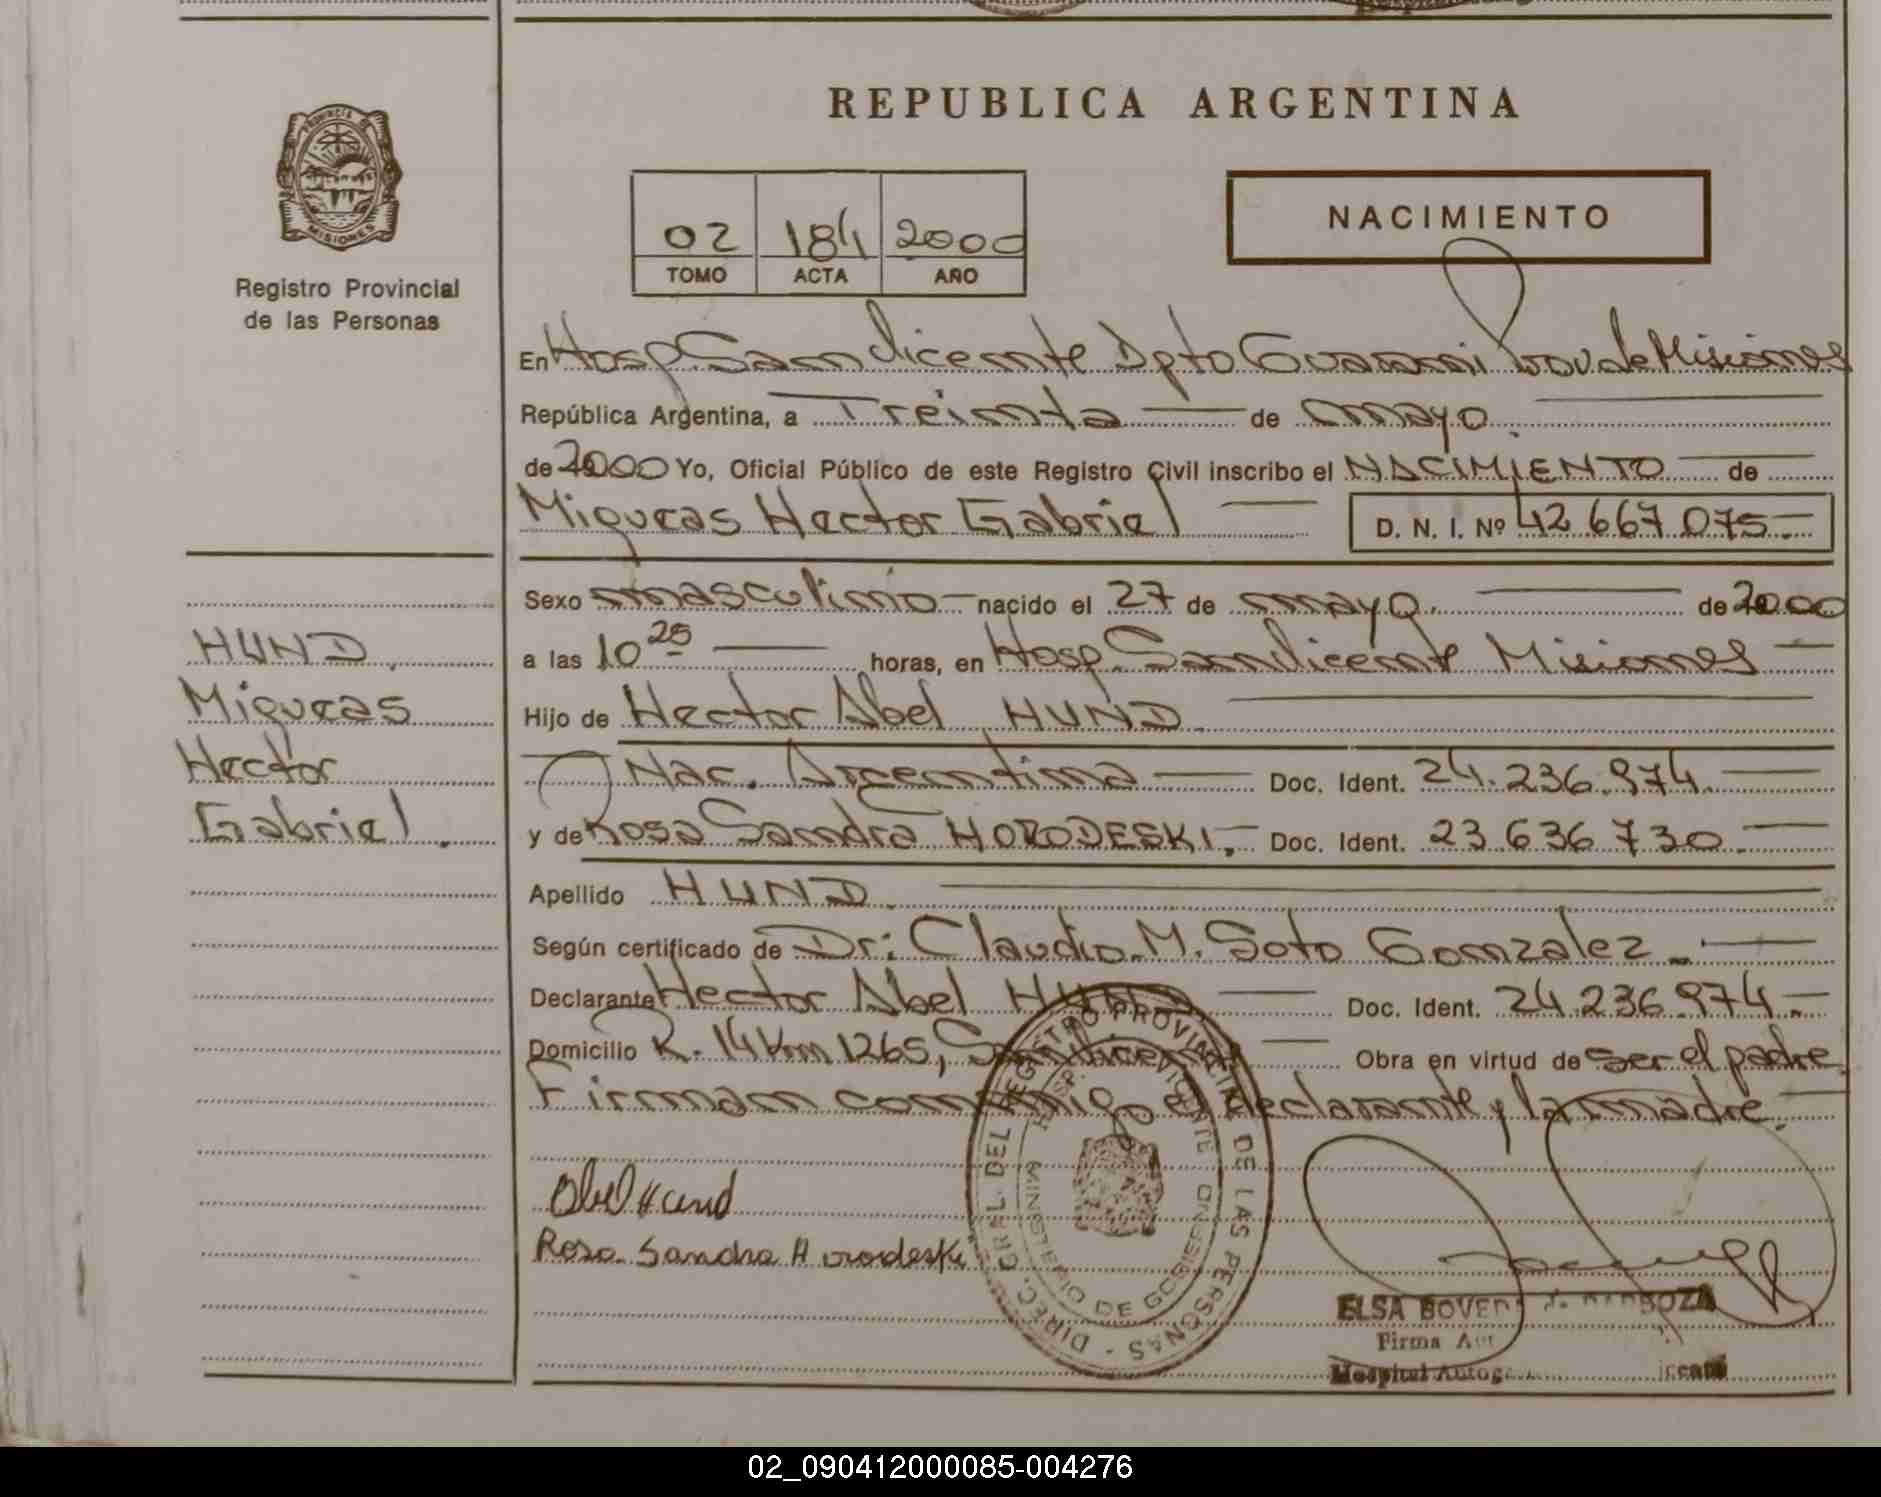 REPUBLICA ARGENTINA
PROVINCIA DE
MISIONES
Registro Provincial
de las Personas
02 184 2000
TOMO ACTA AÑO
NACIMIENTO
En Hosp. San Vicente Dpto Guarani Prov de Misiones
República Argentina, a Treinta de mayo
de 2000 Yo, Oficial Público de este Registro Civil inscribo el NACIMIENTO de
Miqueas Hector Gabriel D. N. I. Nº 42 667 075
Sexo masculino nacido el 27 de mayo de 2000
a las 10 25 horas, en Hosp. San Vicente Misiones
Hijo de Hector Abel HUND
Nac. Argentina Doc. Ident. 24.236.974
y de Rosa Sandra HORODESKI, Doc. Ident. 23 636 730.
Apellido HUND
Según certificado de Dr: Claudio M. Soto Gonzalez
Declarante Hector Abel HUND Doc. Ident. 24.236.974
Domicilio R. 14 Km 1265, San Vicente Obra en virtud de ser el padre
Firman conmigo el declarante y la madre.
HUND
Miqueas
Hector
Gabriel
Abel Hund
Rosa Sandra Horodeski
DIREC. GRAL. DEL REGISTRO PROVINCIAL DE LAS PERSONAS
HOSP. SAN VICENTE
MINISTERIO DE GOBIERNO
ELSA de BARBOZA
Firma
Hospital
02_090412000085-004276